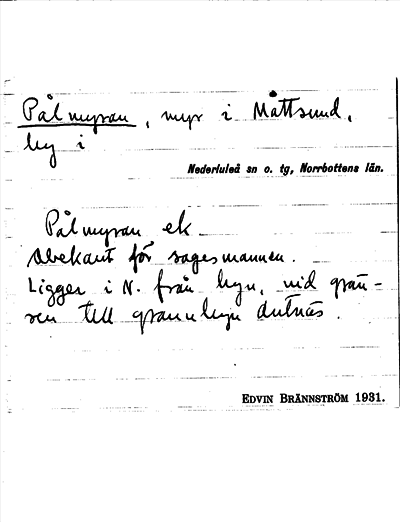 Pålmyran, myr i Måttsund,
by i
Nederluleå sn o. tg, Norrbottens län.
Pålmyran ek.
obekant för sagesmannen.
Ligger i N. från byn, vid grän-
sen till grannbyn Antnäs.
EDVIN BRÄNNSTRÖM 1931.